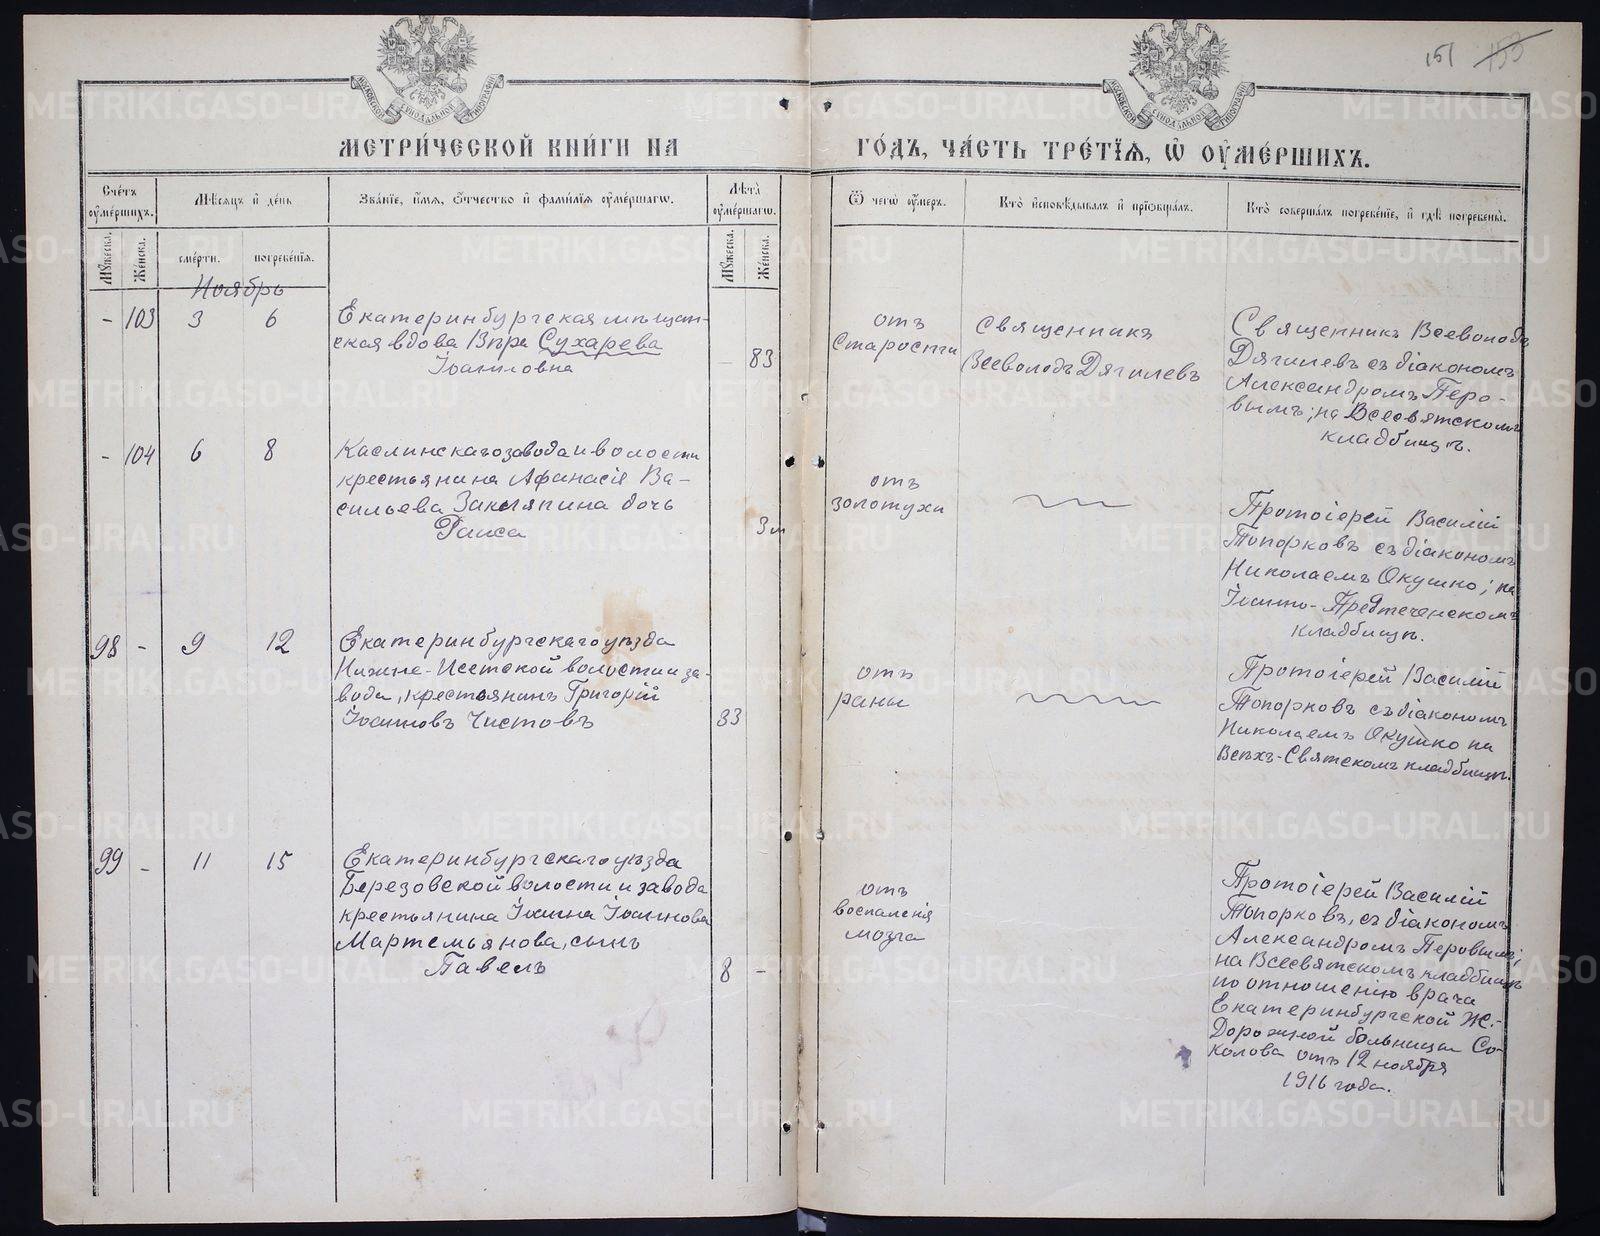 151 153
МЕТРИ́ЧЕСКОЙ КНИ́ГИ НА ГО́ДЪ, ЧА́СТЬ ТРЕ́ТІѦ, Ѡ҆ ОУ҆МЕ́РШИХЪ.
Сче́тъ оу҆ме́ршихъ.
Мѣ́сяцъ и҆ де́нь
Зва́нїе, и҆́мѧ, ѻ҆́тчество и҆ фами́лїѧ оу҆ме́ршагѡ.
Лѣ́та оу҆ме́ршагѡ.
Ѿ чегѡ̀ оу҆́меръ.
Кто̀ и҆сповѣ́дывалъ и҆ прїѡбща́лъ.
Кто̀ соверша́лъ погребе́нїе, и҆ гдѣ̀ погребены̀.
Му́жеска. Же́нска.
сме́рти. погребе́нїѧ.
Му́жеска. Же́нска.
Ноябрь
- 103 3 6
Екатеринбургская мѣщан-
ская вдова Вѣра Сухарева
Іоанновна
- 83
отъ
старости
Священникъ
Всеволодъ Дягилевъ
Священникъ Всеволодъ
Дягилевъ съ діакономъ
Александромъ Перо-
вымъ; на Всесвятскомъ
кладбищѣ.
- 104 6 8
Каслинскаго завода и волости
крестьянина Афанасія Ва-
сильева Закыляпина дочь
Раиса
3 м
отъ
золотухи
Протоіерей Василій
Топорковъ съ діакономъ
Николаемъ Окушко; на
Іоанно-Предтеченскомъ
кладбищѣ.
98 - 9 12
Екатеринбургскаго уѣзда
Нижне-Исетской волости и за-
вода, крестьянинъ Григорій
Іоанновъ Чистовъ
33
отъ
раны
Протоіерей Василій
Топорковъ съ діакономъ
Николаемъ Окушко на
Всѣхъ-Святскомъ кладбищѣ.
99 - 11 15
Екатеринбургскаго уѣзда
Березовской волости и завода
крестьянина Іоанна Іоаннова
Мартемьянова, сынъ
Павелъ
8 -
отъ
воспаленія
мозга
Протоіерей Василій
Топорковъ, съ діакономъ
Александромъ Перовымъ;
на Всесвятскомъ кладбищѣ
по отношенію врача
Екатеринбургской Ж.-
Дорожной больницы Со-
колова отъ 12 ноября
1916 года.